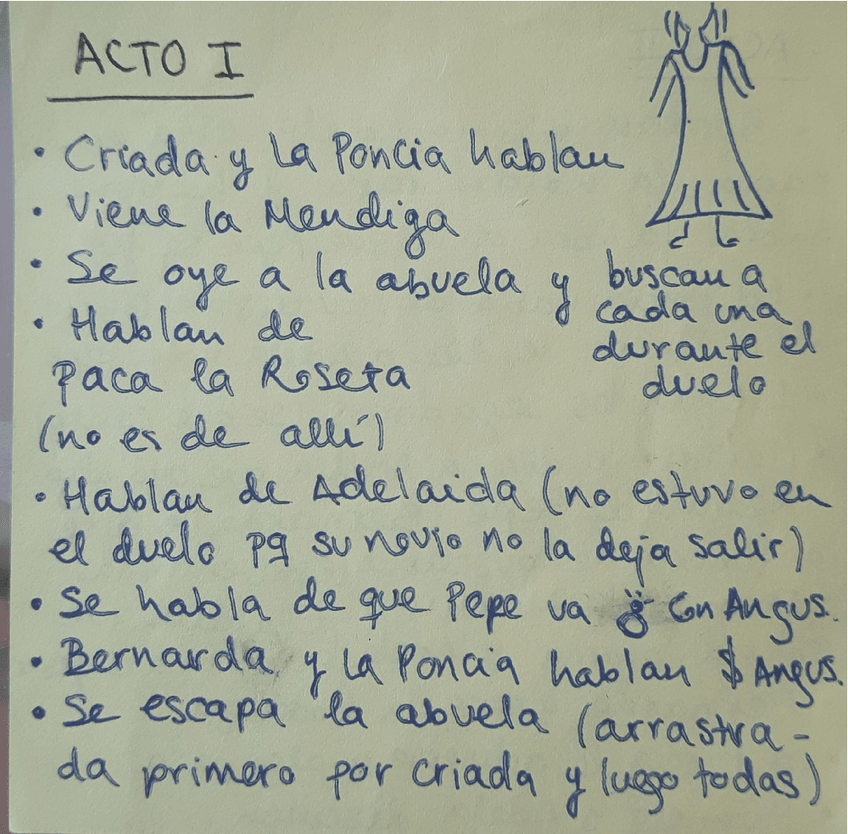 ACTO I
• Criada y La Poncia hablan
• Viene la Mendiga
• Se oye a la abuela y buscan a
cada una
durante el
duelo
• Hablan de
Paca la Roseta
(no es de allí)
• Hablan de Adelaida (no estuvo en
el duelo pq su novio no la deja salir)
• Se habla de que Pepe va con Angus.
• Bernarda y La Poncia hablan $ Angus.
• Se escapa la abuela (arrastra-
da primero por criada y luego todas)